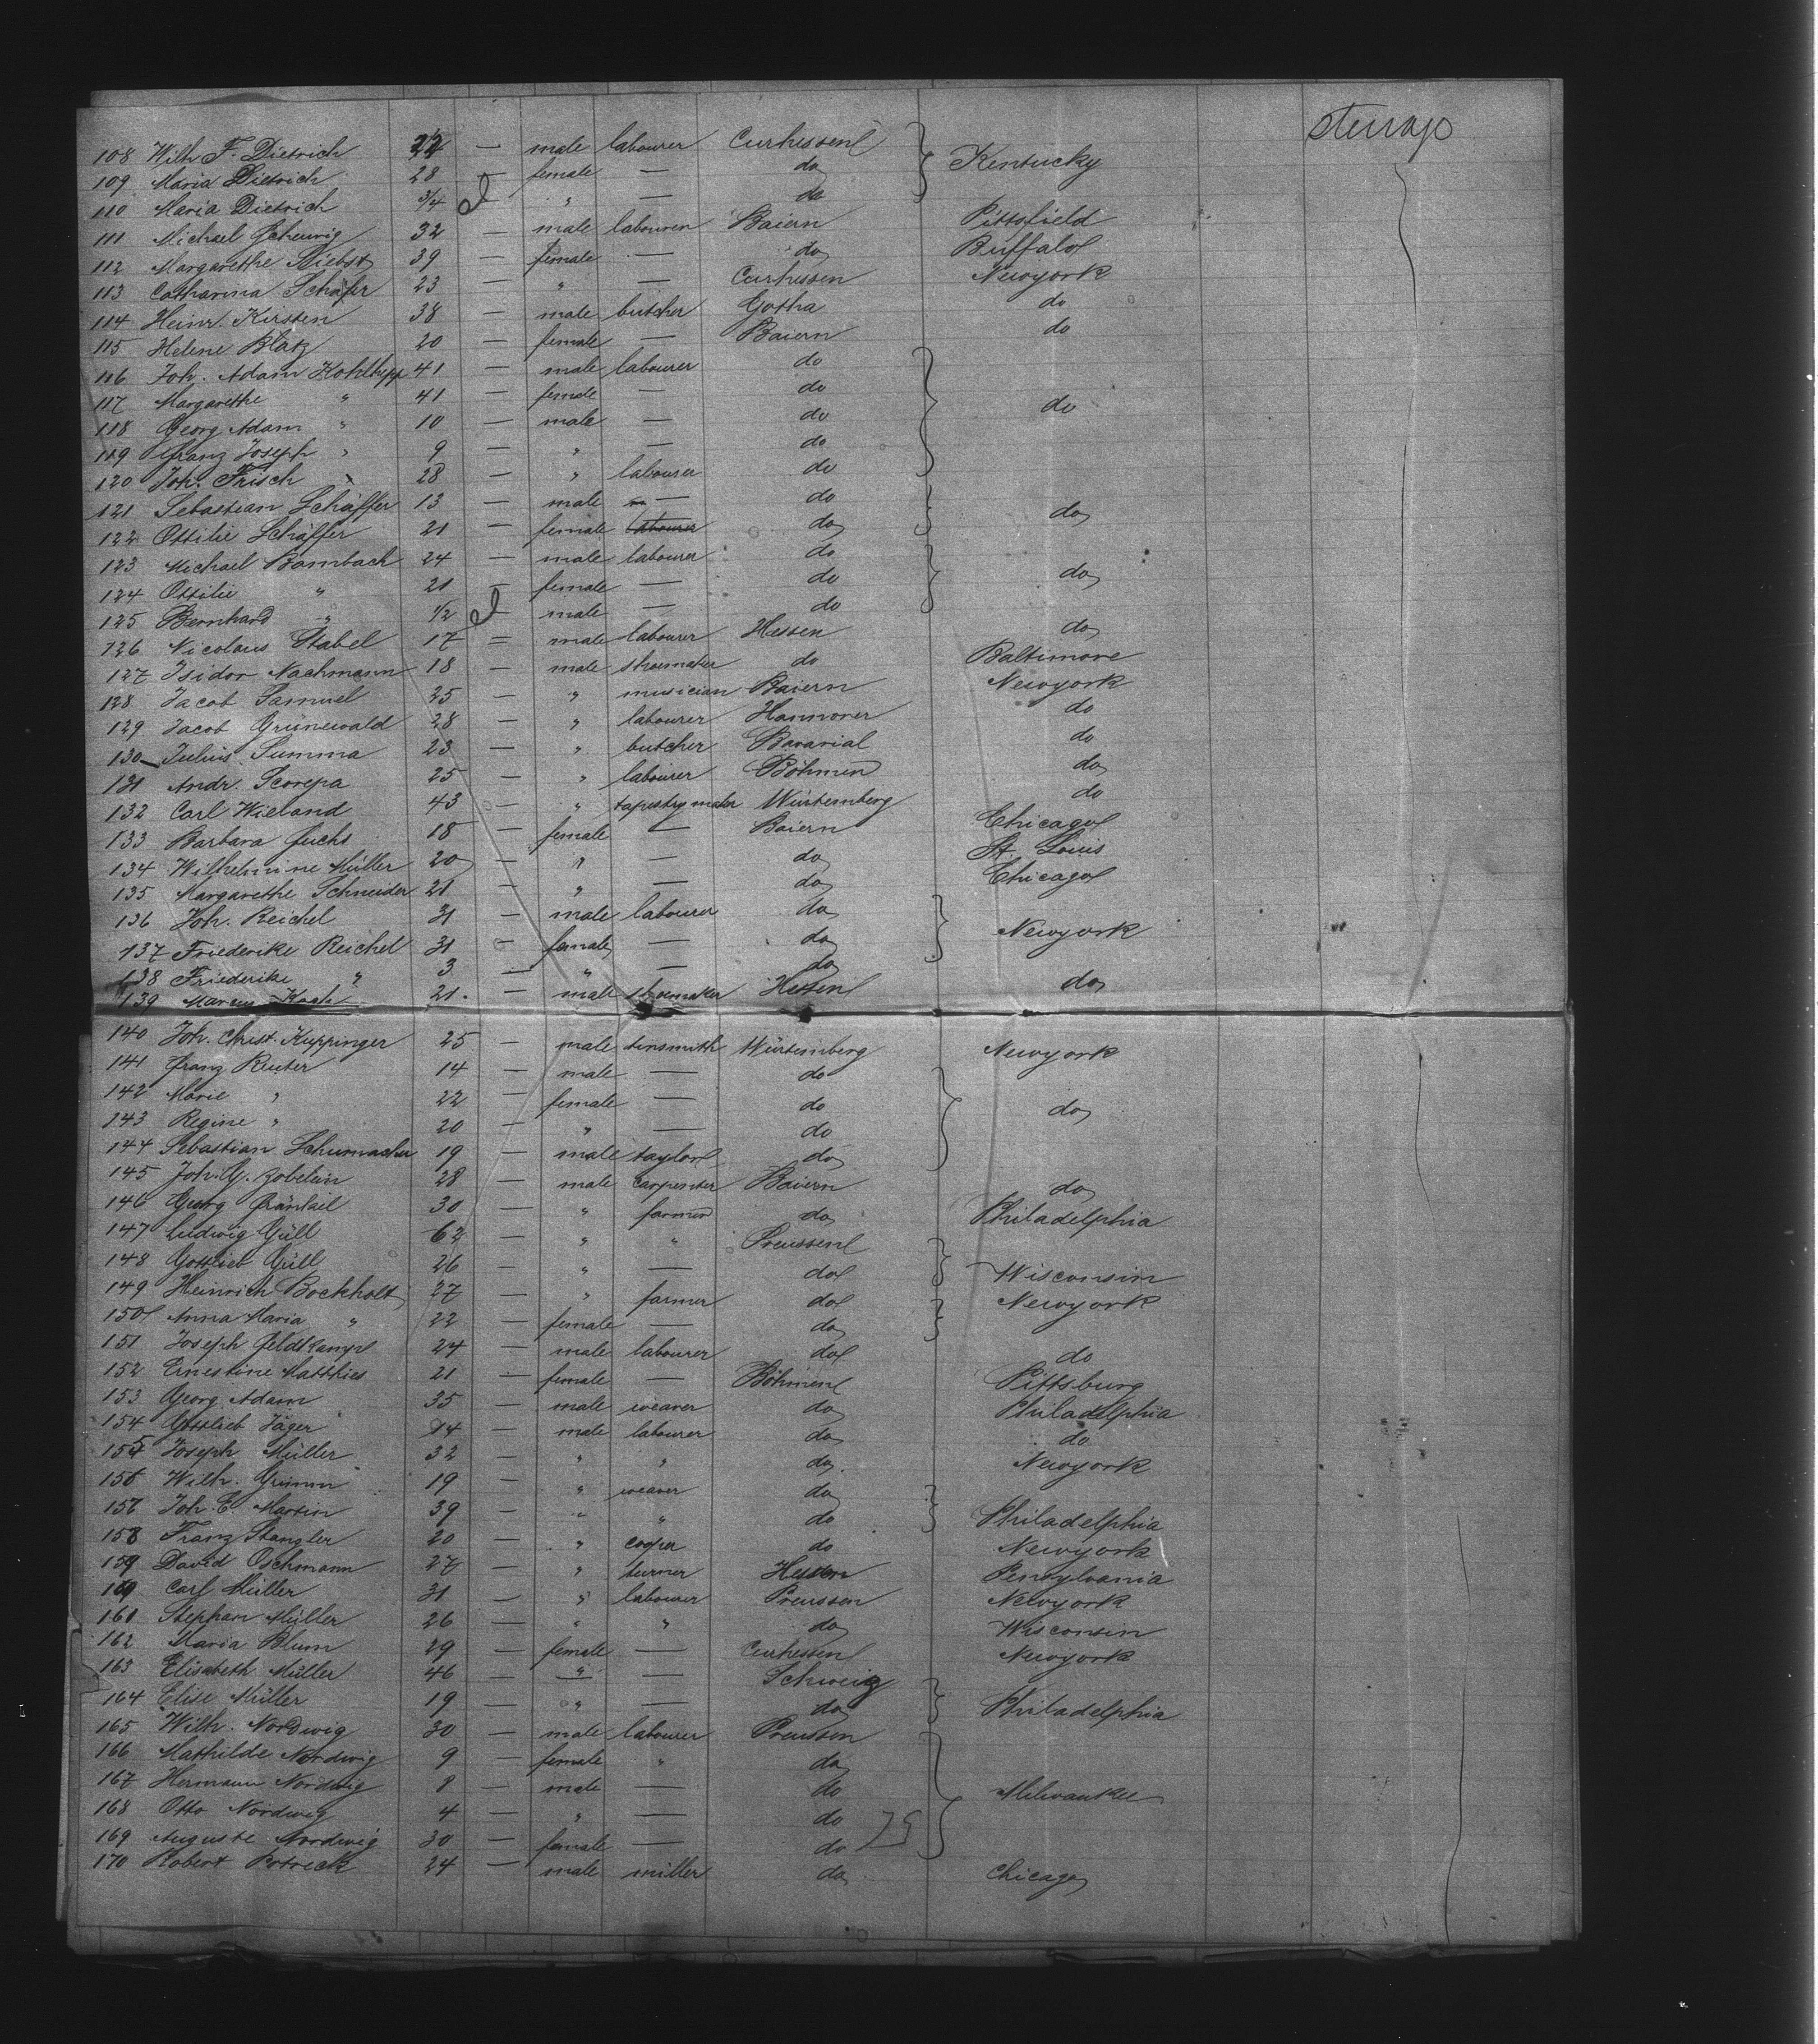 Steerage
108 Wilh F. Dietrich 22 — male labourer Curhessen
109 Maria Dietrich 28 — female — do Kentucky
110 Maria Dietrich 3/4 — " — do
111 Michael 32 — male labourer Baiern Pittsfield
112 Margarethe 39 — female — do Buffalo
113 Catharina Schäfer 23 — " — Curhessen Newyork
114 Heinr. Kirsten 38 — male butcher Gotha do
115 Helene Blatz 20 — female — Baiern do
116 Joh. Adam Kohlhepp 41 — male labourer do
117 Margarethe " 41 — female — do do
118 Georg Adam " 10 — male — do
119 Franz Joseph " 9 — " — do
120 Joh. Frisch 28 — " labourer do
121 Sebastian Schäffer 13 — male — do
122 Ottilie Schäffer 21 — female labourer do do
123 Michael Bambach 24 — male labourer do
124 Ottilie " 21 — female — do do
125 Bernhard " 1/2 — male — do
126 Nicolaus Stabel 17 = male labourer Hessen do
127 Isidor Nachmann 18 — male shoemaker do Baltimore
128 Jacob Samuel 25 — " musician Baiern Newyork
129 Jacob Grünewald 28 — " labourer Hannover do
130 Julius Summa 23 — " butcher Bavaria do
131 Andr. Scorepa 25 — " labourer Böhmen do
132 Carl Wieland 43 — " tapestry maker Würtemberg do
133 Barbara Fuchs 18 — female — Baiern Chicago
134 Wilhelmine Müller 20 — " — do St. Louis
135 Margarethe Schneider 21 — " — do Chicago
136 Joh. Reichel 31 — male labourer do
137 Friederike Reichel 31 — female — do Newyork
138 Friederike " 3 — " — do
139 Marcus Koch 21. — male shoemaker Hessen do
140 Joh. Christ. Kuppinger 25 — male tinsmith Würtemberg Newyork
141 Franz Reuter 14 — male — do
142 Marie " 22 — female — do do
143 Regine " 20 — " — do
144 Sebastian Schumacher 19 — male taylor do
145 Joh. G. Zobelein 28 — male carpenter Baiern do
146 Georg 30 — " farmer do Philadelphia
147 Ludwig Güll 62 — " " Preussen
148 Gottlieb Güll 26 — " — do Wisconsin
149 Heinrich Bockholt 27 — " farmer do Newyork
150 Anna Maria " 22 — female — do
151 Joseph Feldkamp 24 — male labourer do do
152 Ernestine Matthies 21 — female — Böhmen Pittsburg
153 Georg Adam 35 — male weaver do Philadelphia
154 Gottlieb Jäger 14 — male labourer do do
155 Joseph Müller 32 — " " do. Newyork
156 Wilh. Grimm 19 — " weaver do
157 Joh. E. Martin 39 — " " do Philadelphia
158 Franz Stangler 20 — " cooper do Newyork
159 David Oschmann 27 — " turner Hessen Pensylvania
160 Carl Müller 31 — " labourer Preussen Newyork
161 Stephan Müller 26 — " " do Wisconsin
162 Maria Blum 29 — female — Curhessen Newyork
163 Elisabeth Müller 46 — " — Schweig
164 Elise Müller 19 — " — do Philadelphia
165 Wilh. Nordwig 30 — male labourer Preussen
166 Mathilde Nordwig 9 — female " do
167 Hermann Nordwig 8 — male — do Milwaukee
168 Otto Nordwig 4 — " — do
169 Auguste Nordwig 30 — female — do
170 Robert Potreck 24 — male miller do Chicago